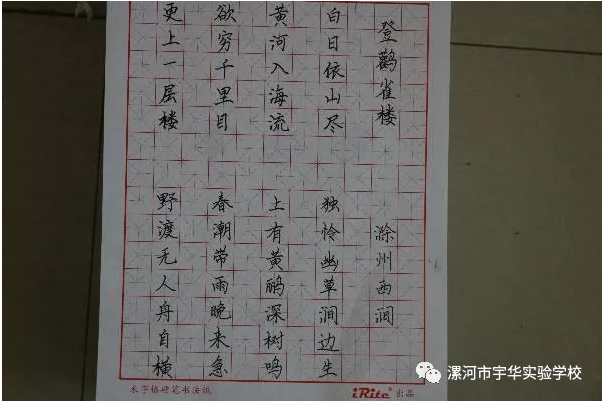 登鹳雀楼
白日依山尽
黄河入海流
欲穷千里目
更上一层楼
滁州西涧
独怜幽草涧边生
上有黄鹂深树鸣
春潮带雨晚来急
野渡无人舟自横
米字格硬笔书法纸
iRite® 出品
漯河市宇华实验学校